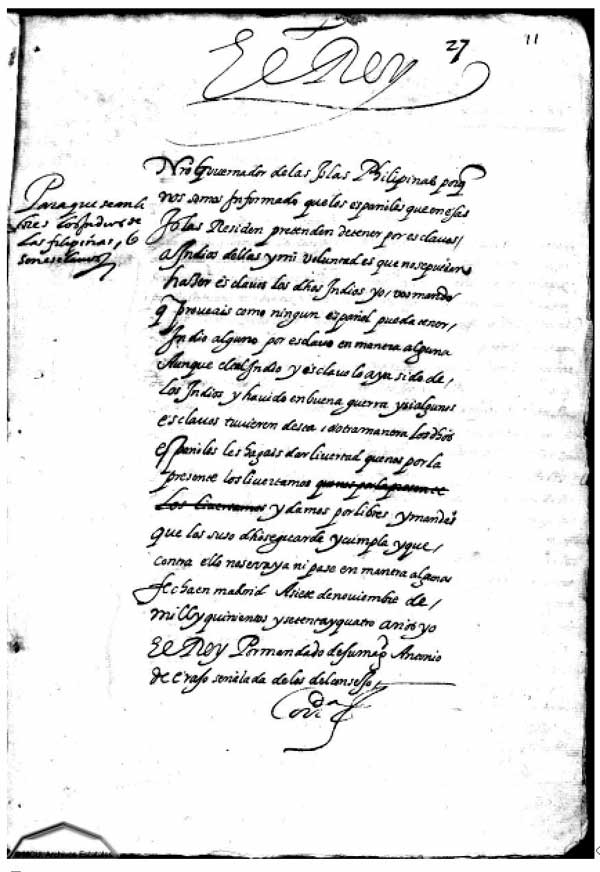 27
11
El Rey
Para que sean li
bres los Indios de
las filipinas, y
sonesclavos
Nro Governador de las Islas Philipinas porq
nos somos Informado que los españoles que en esas
Islas Residen pretenden detener por esclavos,
a Indios dellas y mi voluntad es que no se pueden
hazer esclavos los dhos Indios yo, vos mando
q proveais como ningun español pueda tener,
Indio alguno por esclavo en manera alguna
Aunque el tal Indio y esclavo lo aya sido de,
los Indios y havido en buena guerra y si algunos
esclavos tuvieren desta, o otra manera los dhos
españoles les hagais dar livertad que nos por la
presente los livertamos que nos por la presente
los livertamos y damos por libres y mandamos
que lo suso dho se guarde y cumpla y que,
contra ello no se vaya ni pase en manera alguna
fecha en madrid A siete de noviembre de,
mill y quinientos y setenta y quatro años yo
El Rey Por mandado de su magd Antonio
de eraso señalada de los del consejo,